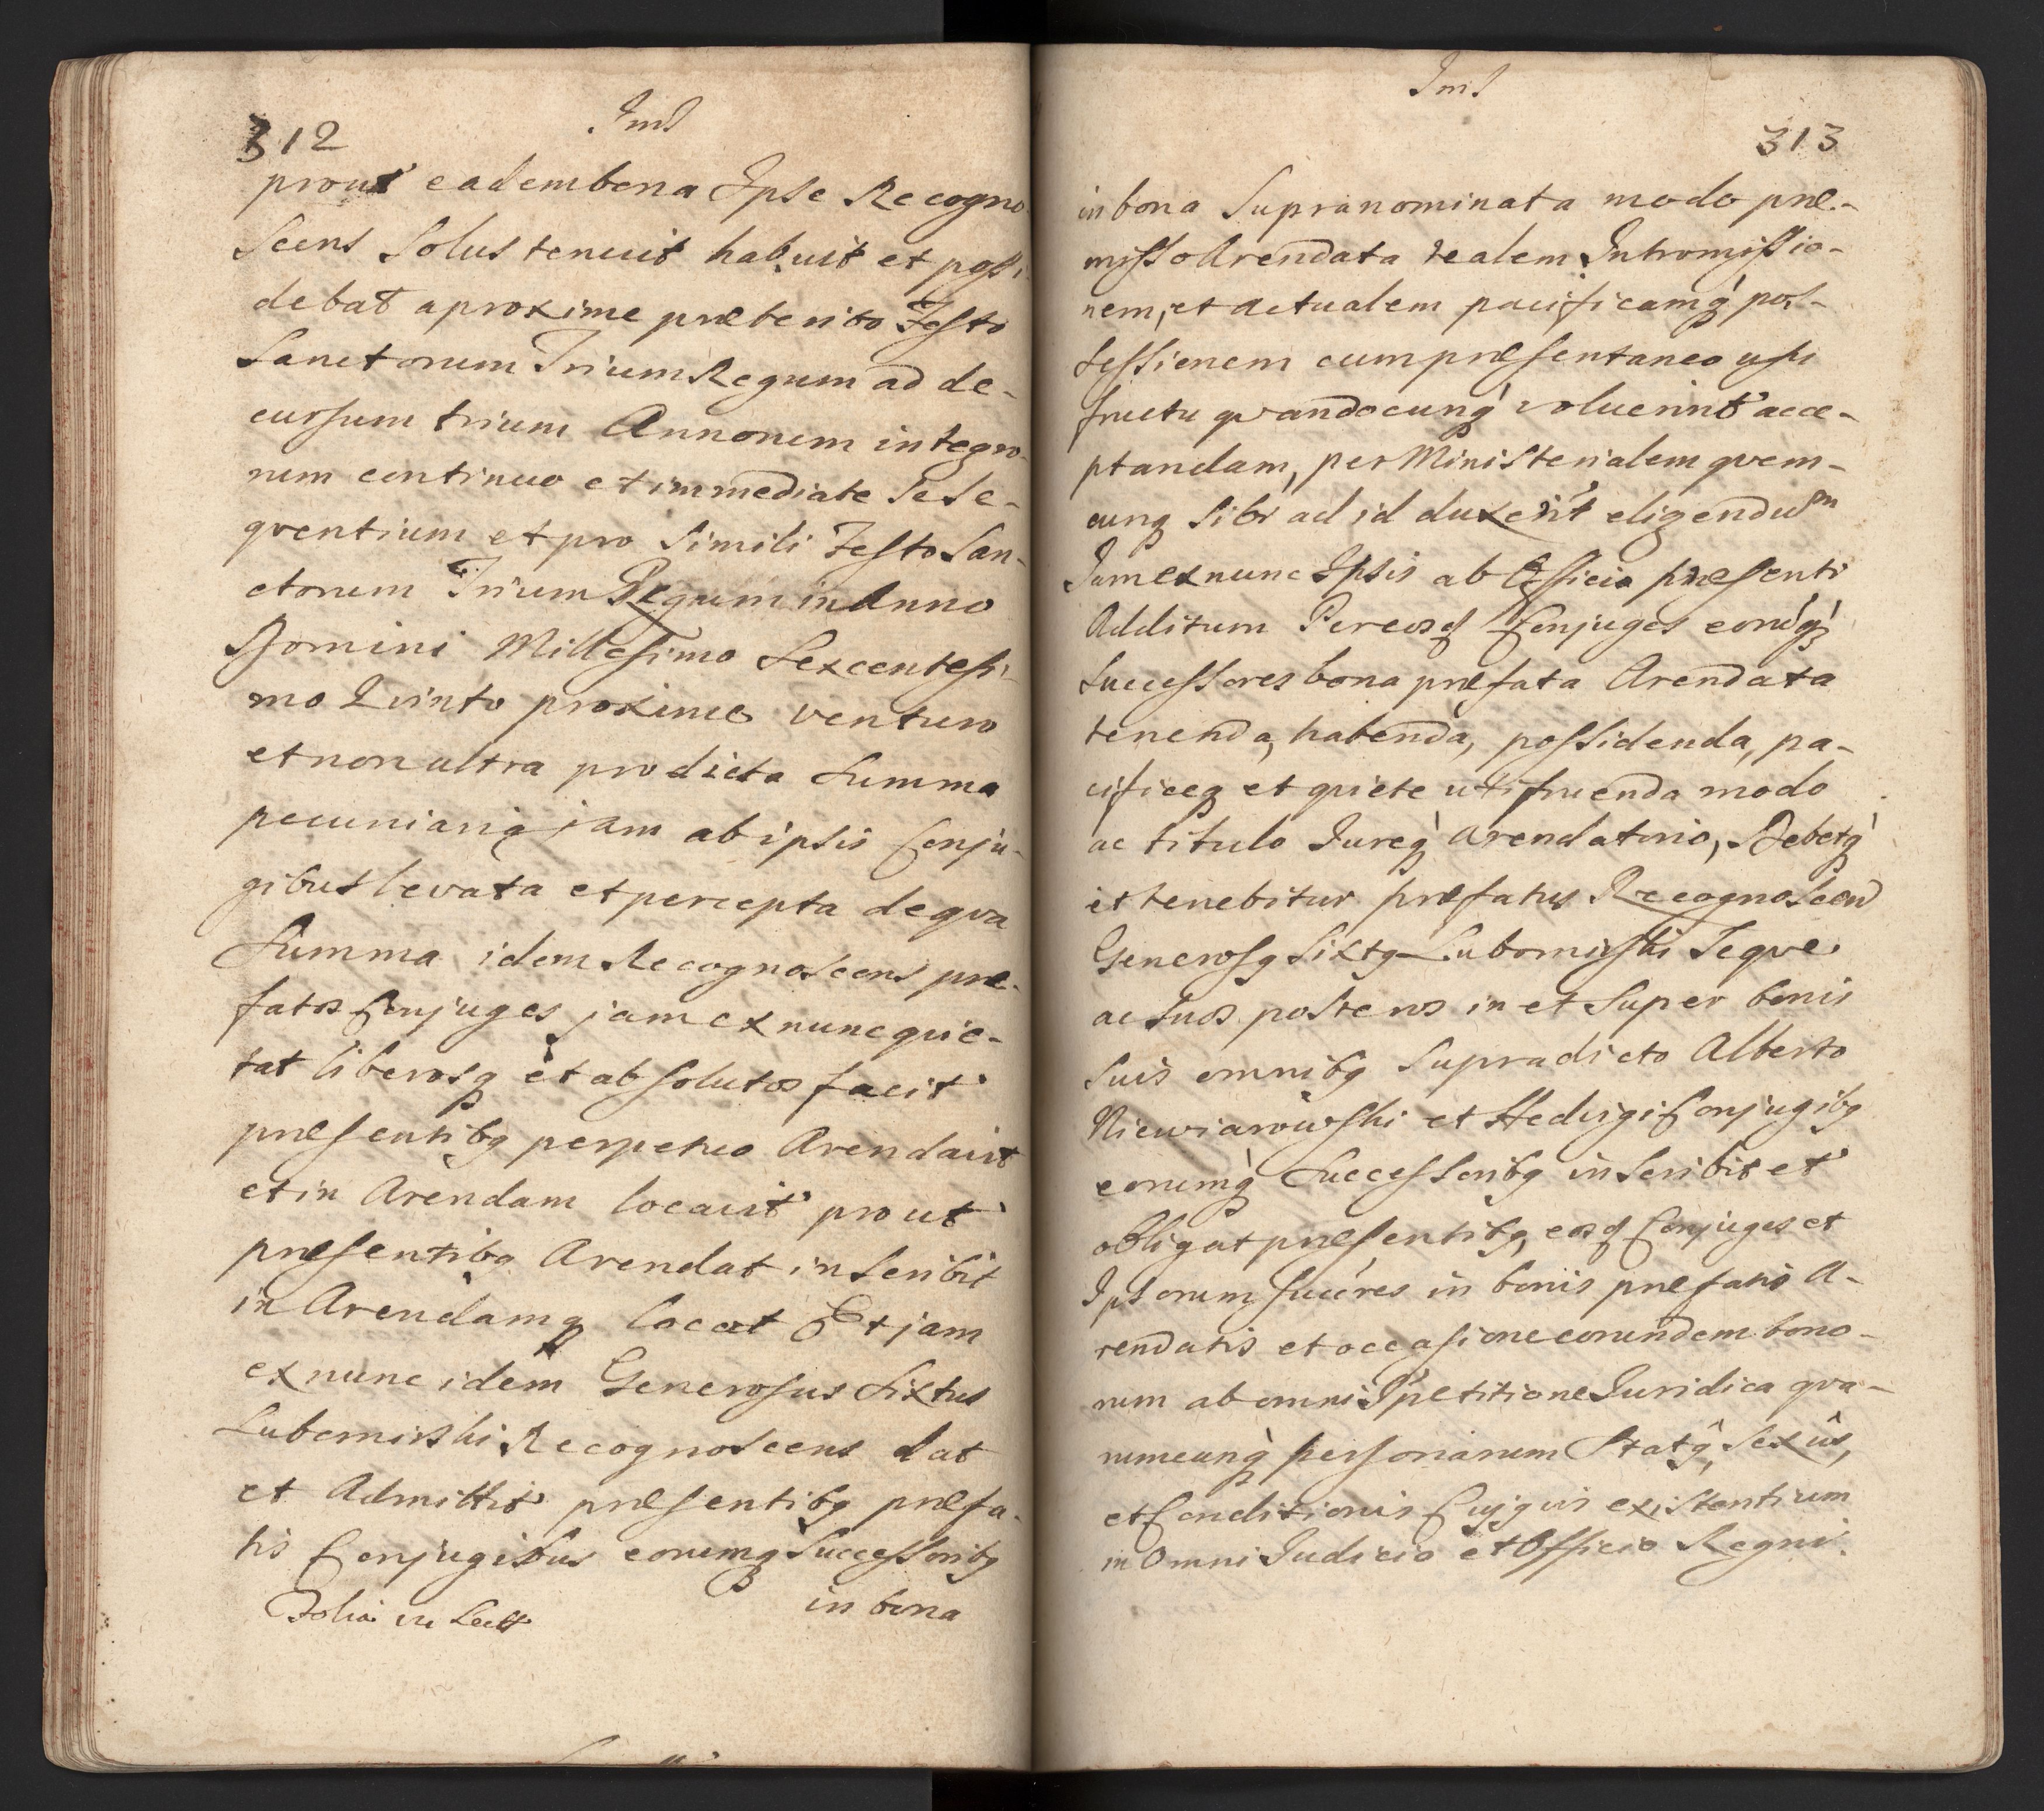 312
prout eadem bona Ipse Recogno
scens Solus tenuit habuit et possi
debat a proxime præterito Festo
Sanctorum Trium Regum ad de-
cursum trium Annorum integro-
rum continuo et immediate se se-
qventium et pro Simili Festo San-
ctorum Trium Regum in Anno
Domini Millesimo Sexcentesi-
mo Qvinto proxime venturo
et non ultra pro dicta Summa
pecuniaria jam ab ipsis Conju-
gibus levata et percepta de qva
Summa idem Recognoscens præ-
fatos Conjuges jam ex nunc qvie-
tat liberosq et absolutos facit
præsentibq perpetuo Arendavit
et in Arendam locavit prout
præsentibq Arendat inscribit
in Arendamq locat Et jam
ex nunc idem Generosus Sixtus
Lubomirski Recognoscens dat
et Admittit præsentibq præfa-
tis Conjugibus eorumq Successoribq
in bona
313
in bona Supranominata modo præ-
misso Arendata realem Intromissio-
nem, et actualem pacificamq pos-
sessionem cum præsentaneo usu
fructu qvandocunq voluerint acce-
ptandam, per Ministerialem qvem-
cunq Sibi ad id duxerint eligendum
Jam ex nunc Ipsis ab Officio præsenti
Additum Per eosd Conjuges eorúq
Successores bona præfata Arendata
tenenda, habenda, possidenda, pa-
cificeq et qviete utifruenda modo
ac titulo Jureq arendatorio, Debetq
et tenebitur præfatus Recognoscen
Generosq Sixtq Lubomirski Seqve
ac Suos posteros in et Super bonis
Suis omnibq Supradicto Alberto
Niewiarowski et Hedvigi Conjugibq
eorumq Successoribq inscribit et
obligat præsentibq, eosd Conjuges et
Ipsorum succres in bonis præfatis A-
rendatis et occasione eorundem bono-
rum ab omni Impetitione Juridica qva-
rumcunq personarum Statq, Sexûs,
et Conditionis Cujqvis existentium
in Omni Judicio et Officio Regni